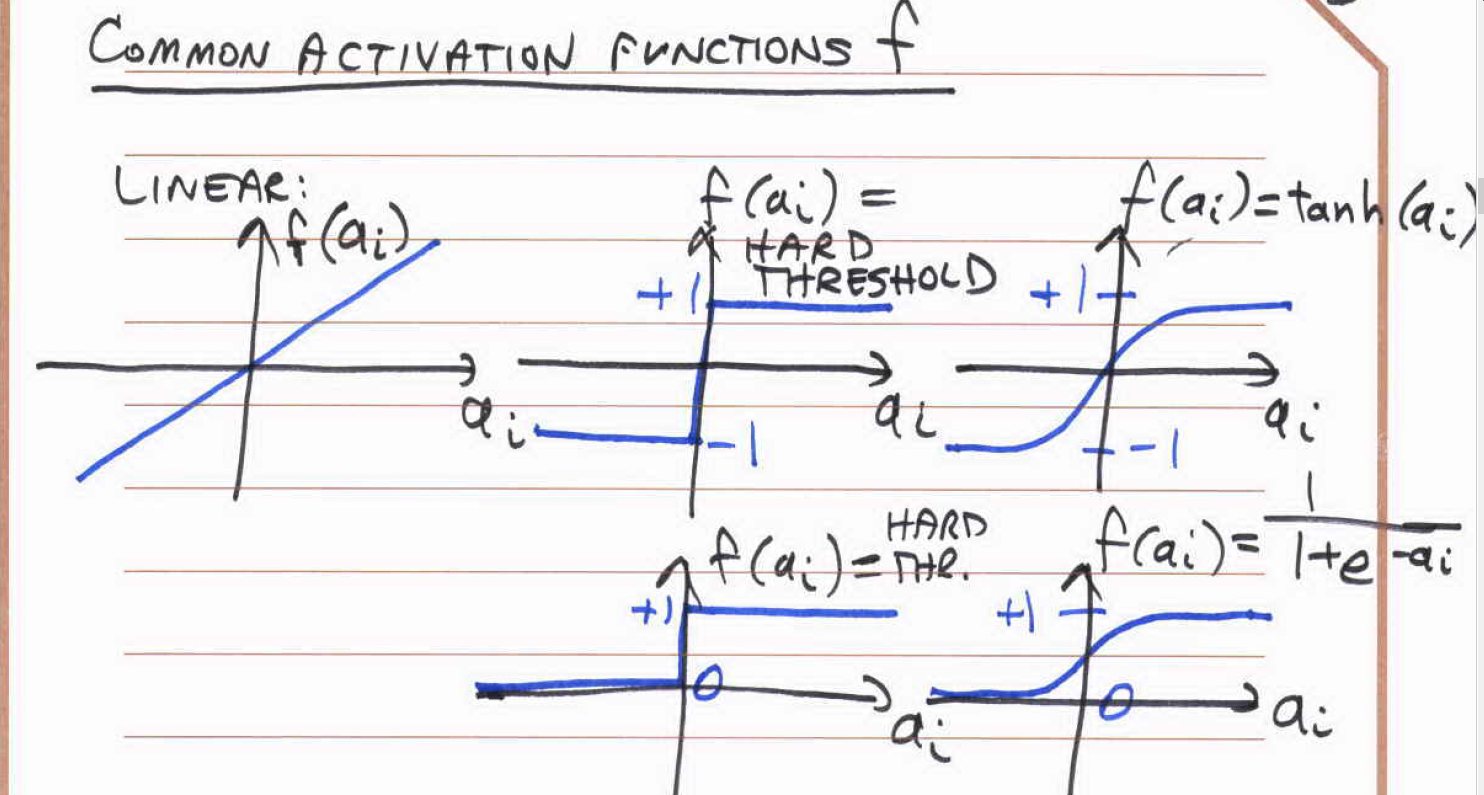 COMMON ACTIVATION FUNCTIONS f
LINEAR:
f(ai)
ai
f(ai) =
HARD
THRESHOLD
+1
-1
ai
f(ai)=tanh(ai)
+1
-1
ai
f(ai)= HARD
THR.
+1
0
ai
f(ai)= 1
1+e-ai
+1
0
ai